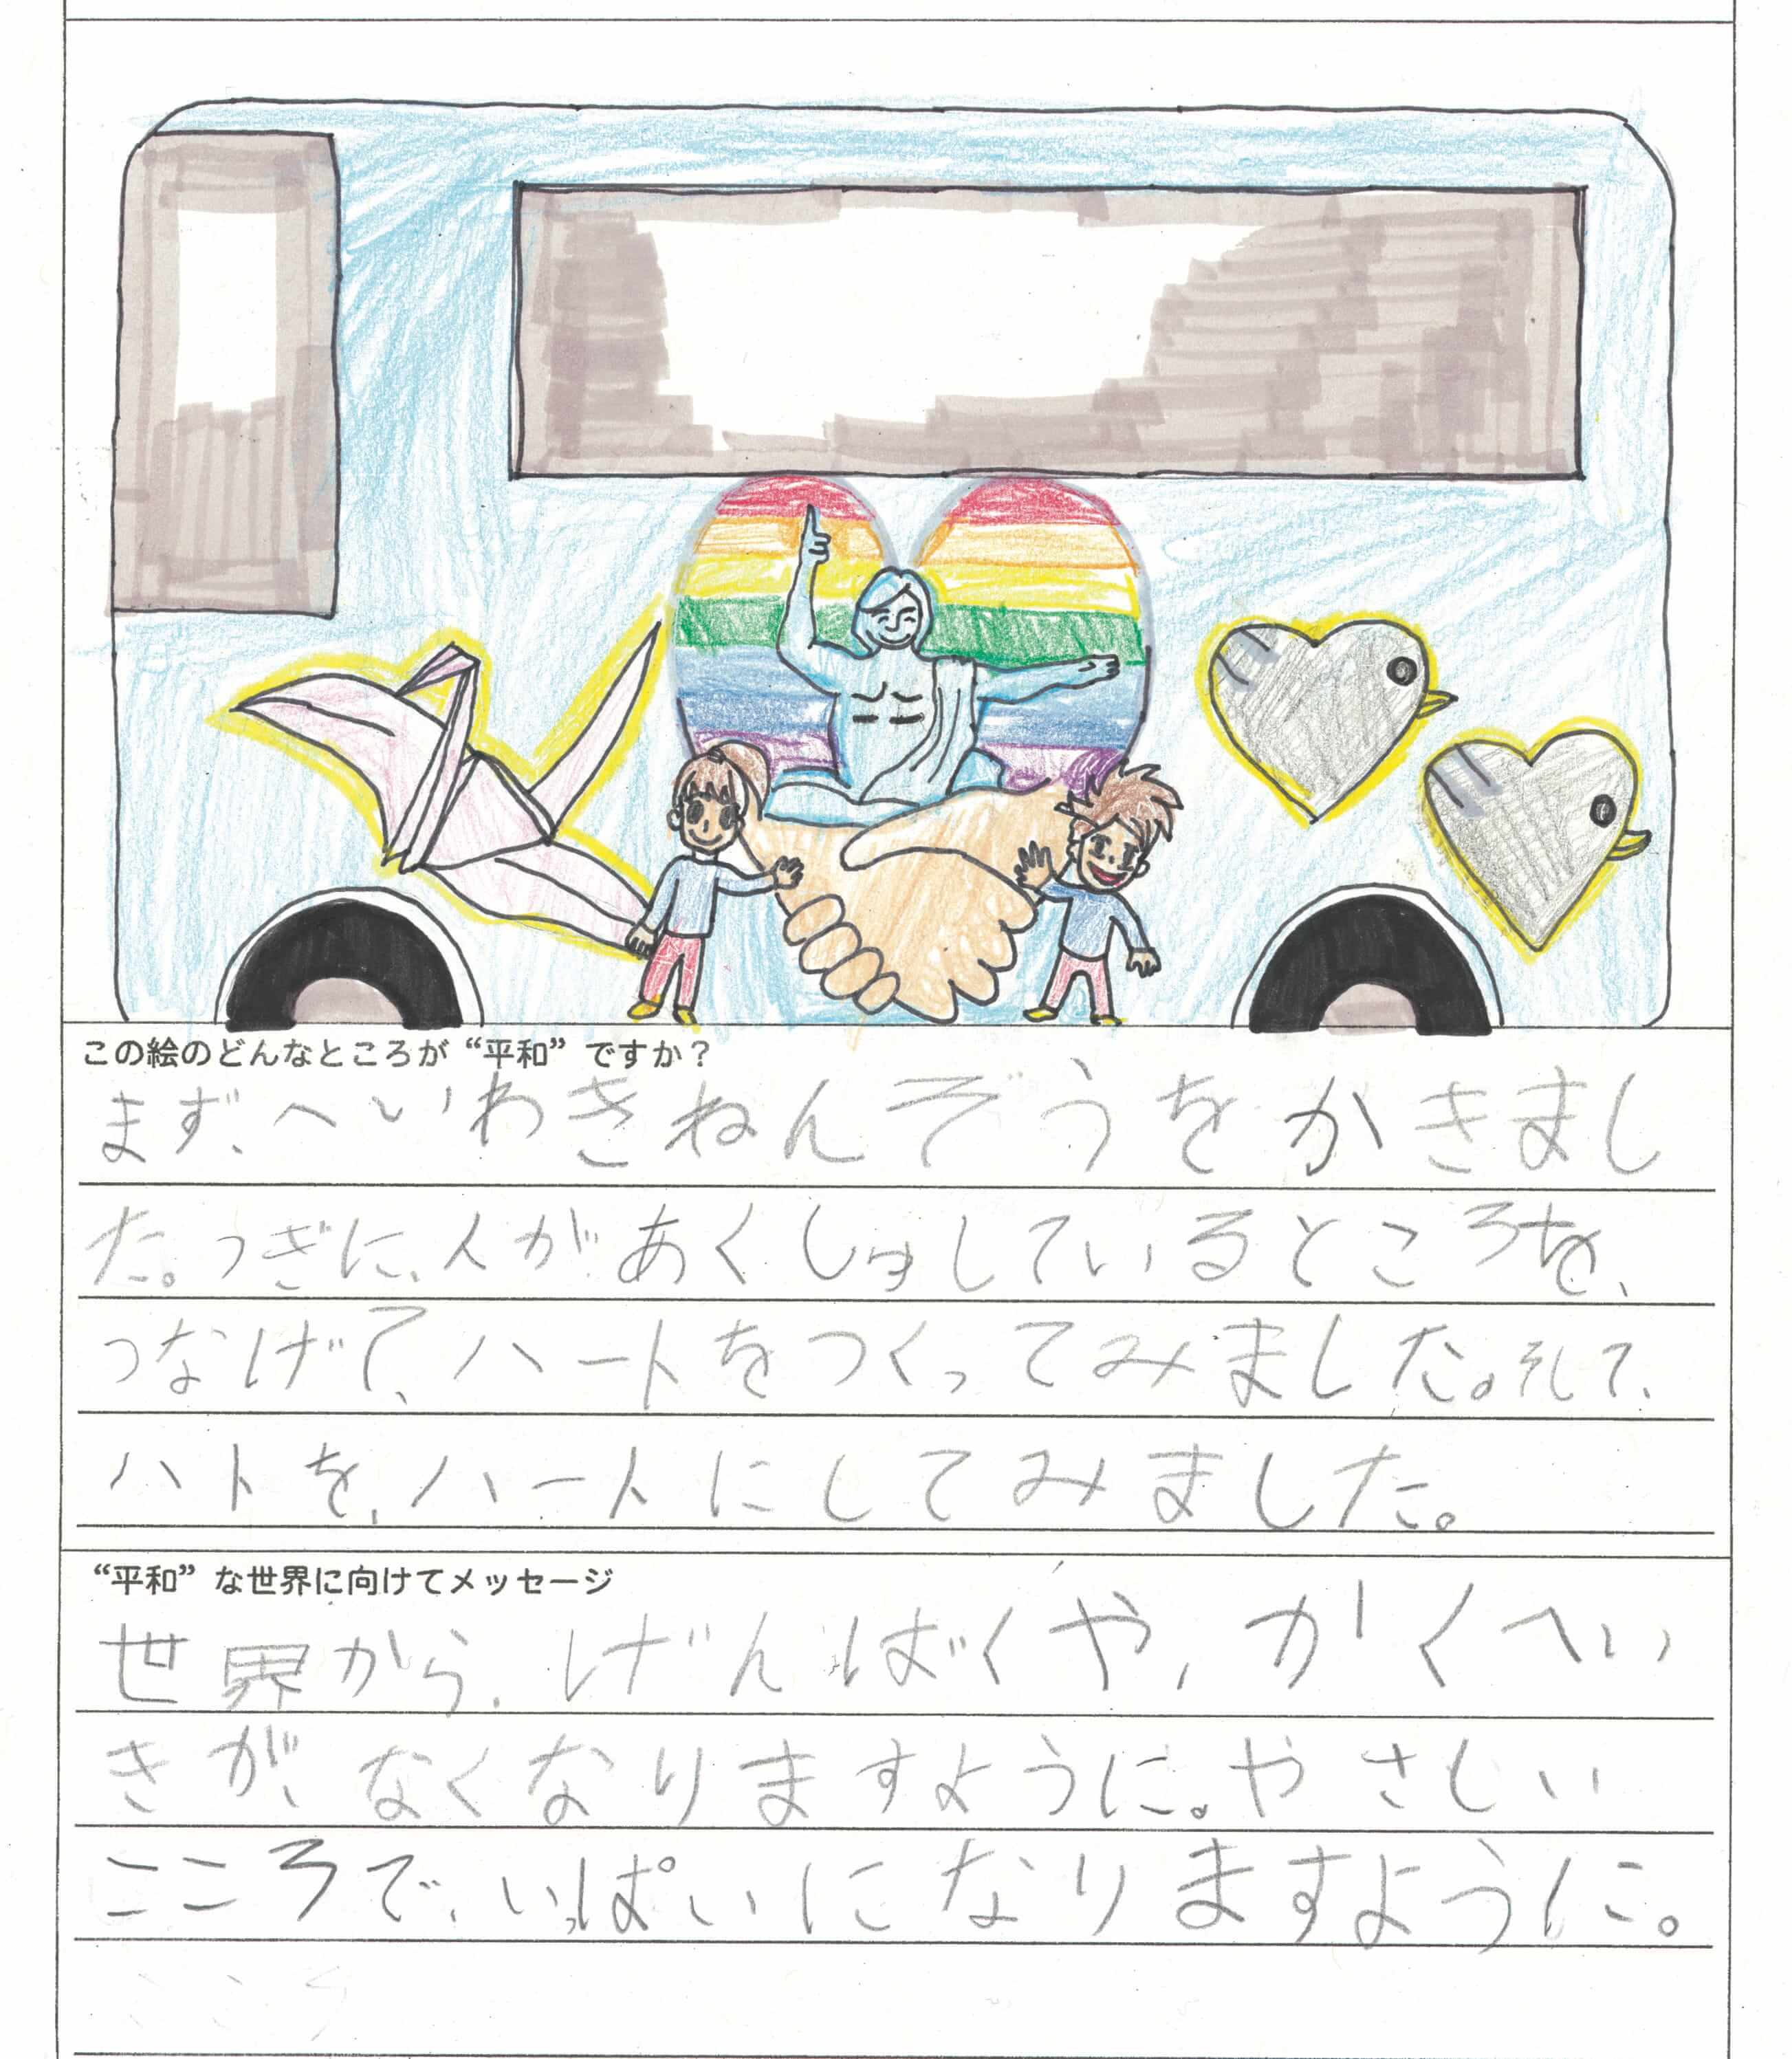 この絵のどんなところが“平和”ですか？
まず、へいわきねんぞうをかきまし
た。つぎに、人があくしゅしているところを、
つなげて、ハートをつくってみました。そして、
ハトを、ハートにしてみました。
“平和”な世界に向けてメッセージ
世界から、げんばくや、かくへい
きが、なくなりますように。やさしい
こころで、いっぱいになりますように。